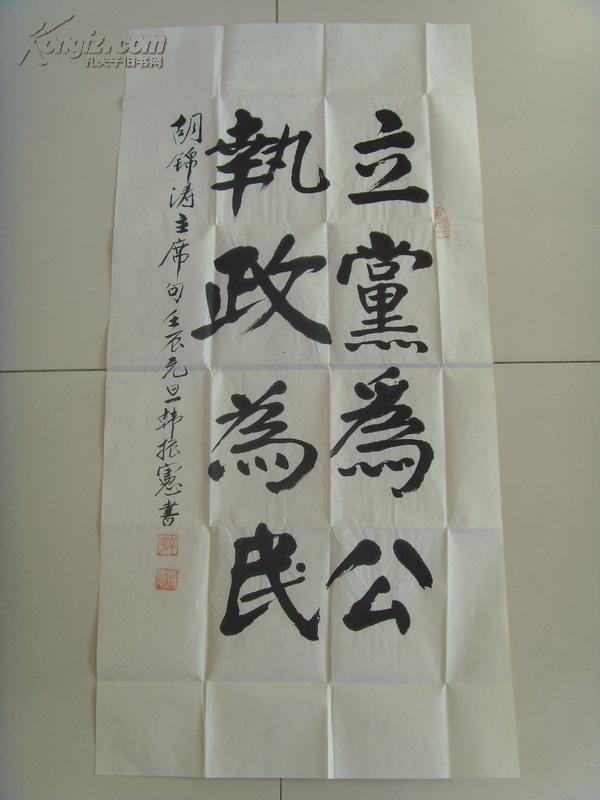 立黨為公
執政為民
胡锦涛主席句壬辰元旦韩振憲書
Kongfz.com
孔夫子旧书网